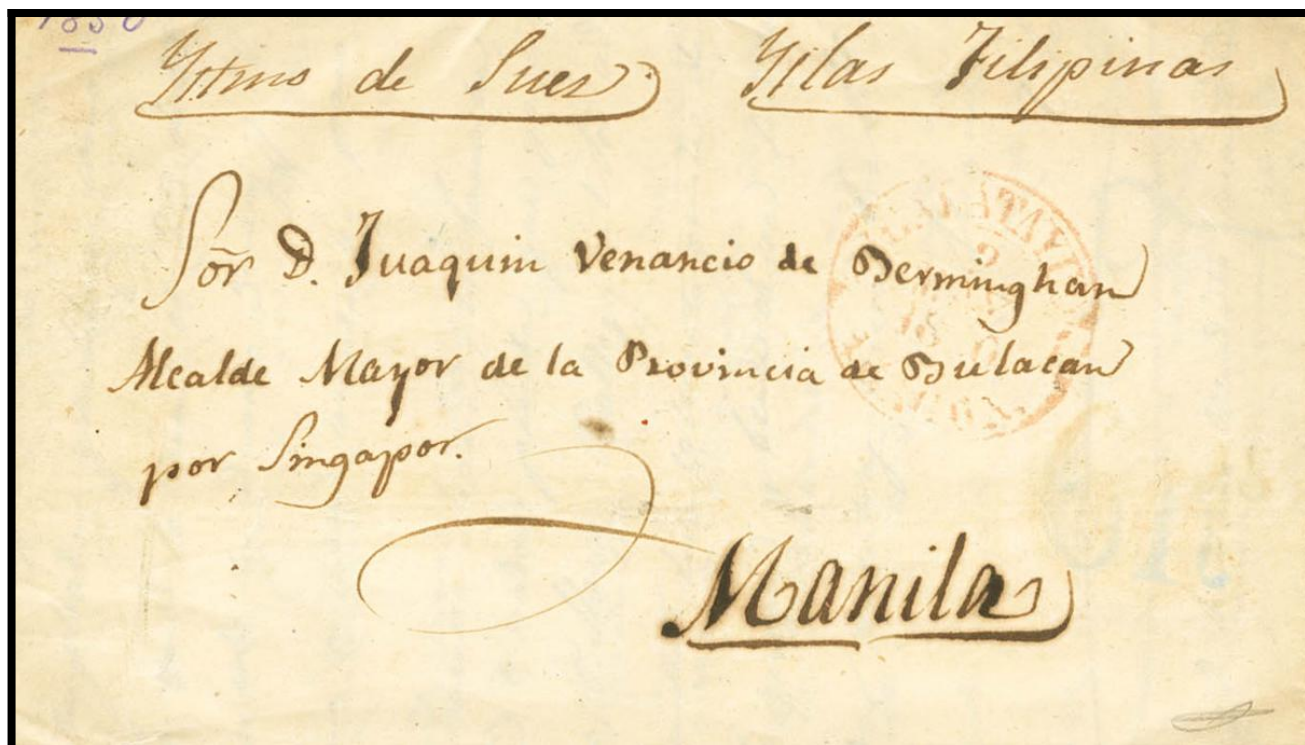 1850
Ystmo de Sues. Yslas Filipinas
Sõr D. Juaquin Venancio de Berminghan
Alcalde Mayor de la Provincia de Bulacan
por Singapor.
Manila
CALATAYUD